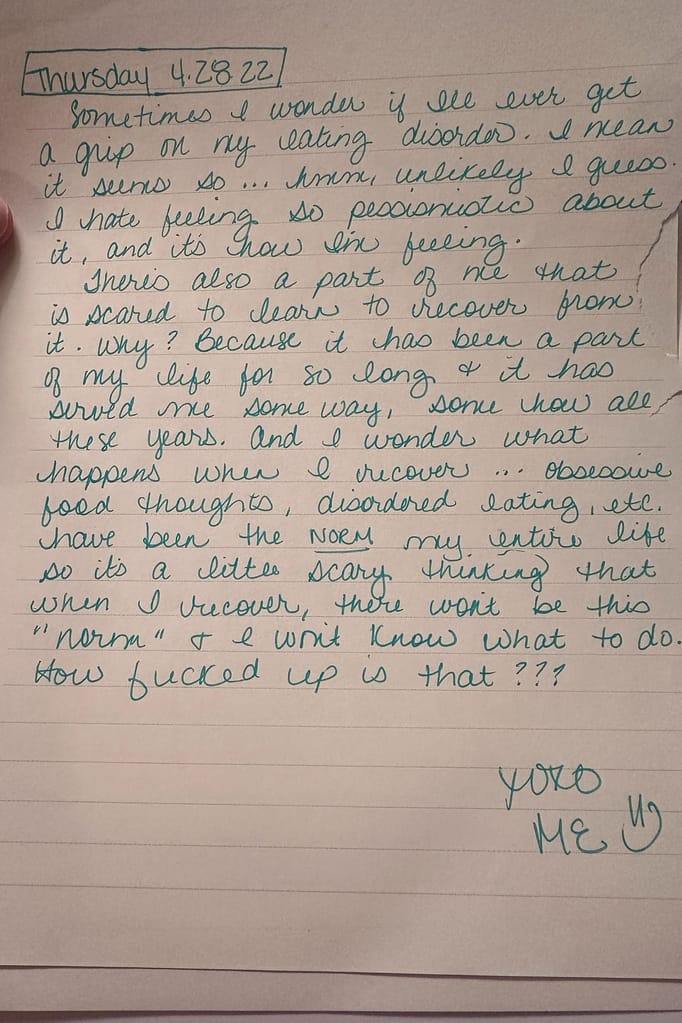 Thursday 4.28.22
Sometimes I wonder if I'll ever get
a grip on my eating disorder. I mean
it seems so ... hmm, unlikely I guess.
I hate feeling so pessismistic about
it, and it's how I'm feeling.
There's also a part of me that
is scared to learn to recover from
it. Why? Because it has been a part
of my life for so long & it has
served me some way, some how all
these years. And I wonder what
happens when I recover ... obsessive
food thoughts, disordered eating, etc.
have been the NORM my entire life
so it's a little scary thinking that
when I recover, there won't be this
"norm" & I won't know what to do.
How fucked up is that???
XOXO
ME